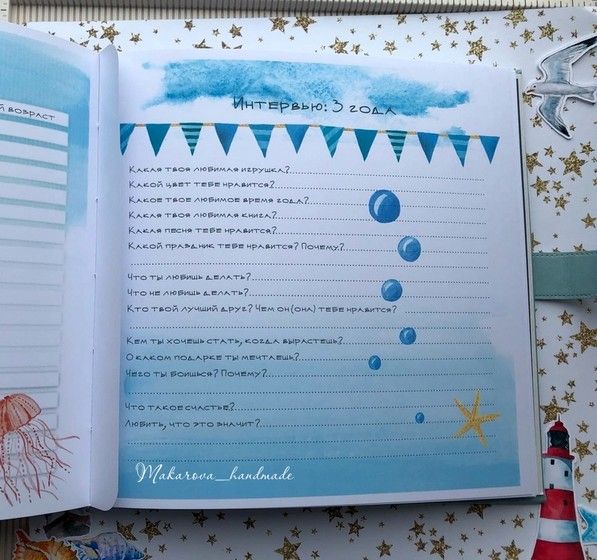 Й ВОЗРАСТ
Интервью: 3 года
Какая твоя любимая игрушка?
Какой цвет тебе нравится?
Какое твое любимое время года?
Какая твоя любимая книга?
Какая песня тебе нравится?
Какой праздник тебе нравится? Почему?
Что ты любишь делать?
Что не любишь делать?
Кто твой лучший друг? Чем он(она) тебе нравится?
Кем ты хочешь стать, когда вырастешь?
О каком подарке ты мечтаешь?
Чего ты боишься? Почему?
Что такое счастье?
Любить, что это значит?
Makarova_handmade